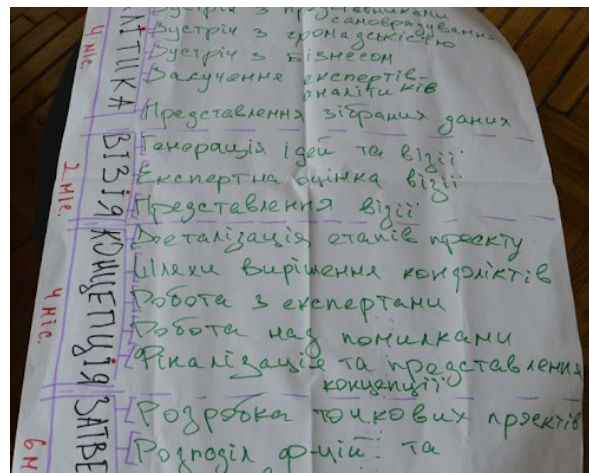 Зустріч з представниками
самоврядування
Зустріч з громадськістю
Зустріч з бізнесом
Залучення експертів-
аналітиків
Представлення зібраних даних
4 міс.
ВІЗІЯ
2 міс.
Генерація ідей та візії
Експертна оцінка візії
Представлення візії
КОНЦЕПЦІЯ
4 міс.
Деталізація етапів проєкту
Шляхи вирішення конфліктів
Робота з експертами
Робота над помилками
Фіналізація та представлення
концепції
Розробка точкових проєктів
Розподіл ф-цій та